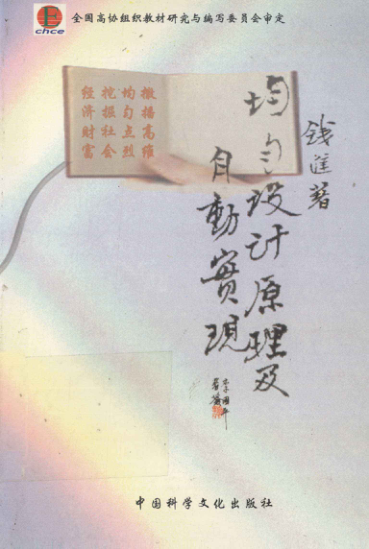 全国高协组织教材研究与编写委员会审定
chce
撒播高维
均匀点烈
挖掘社会
经济财富
均匀设计原理及
自動實現
中国科学文化出版社